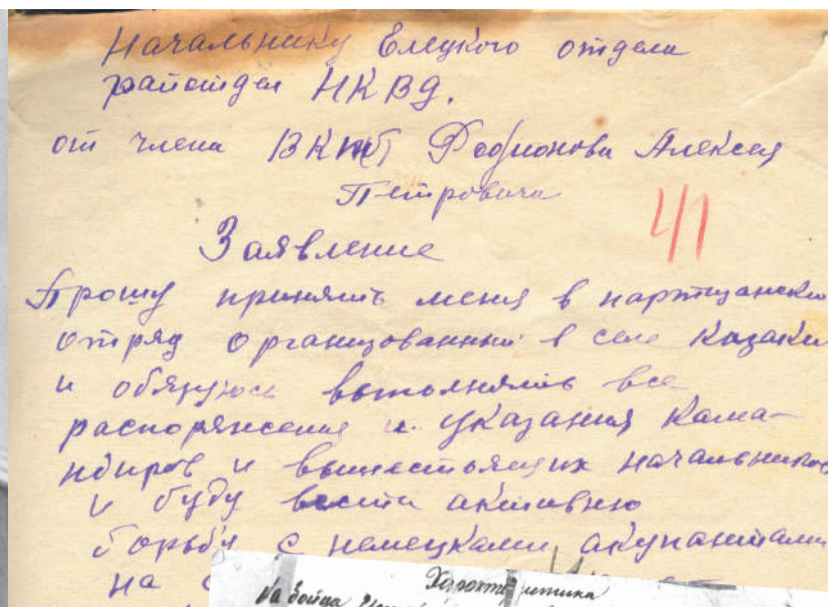 Начальнику Елецкого отдела
райотдел НКВД.
от члена ВКПб Родионова Алексея
Петровича
41
Заявление
Прошу принять меня в партизански
отряд организованный в селе Казаки
и обязуюсь выполнять все
распоряжения и указания кама-
ндиров и вышестоящих начальников
и буду вести активню
борьбу с немецками акупантами
на
Характеристика
на бойца